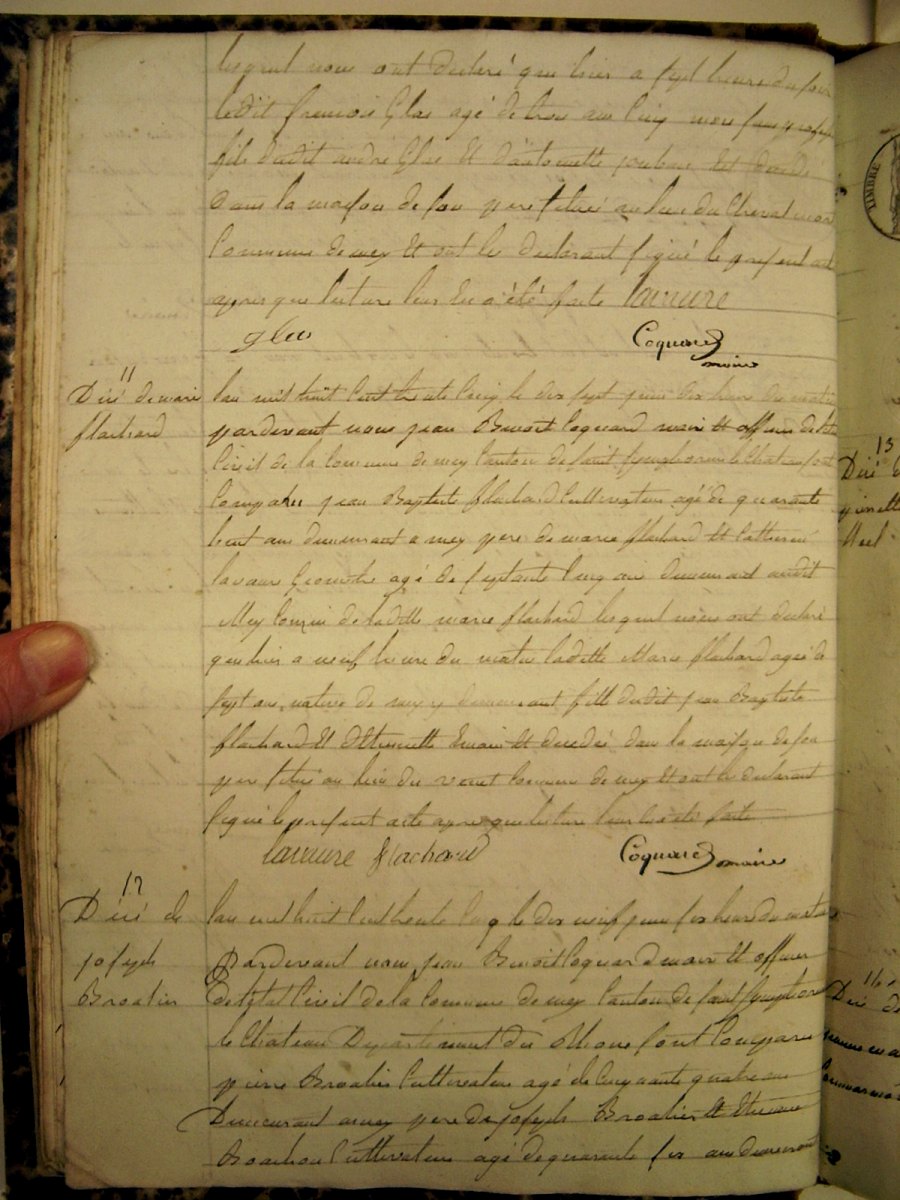 lesquel nous ont declaré que hier a sept heure du soir
ledit francois Glas agé de trois ans cinq mois
fils dudit andré Glas et d'antoinette est decedé
dans la maison de son pere situé au lieu du Cheval mort
Commune de mey et ont les declarant signé le present acte
apres que lecture leur en a été faite Lavaure
glas
Coquard
maire
11
Décé de marie
flachard
lan mil huit Cent trente Cinq le dix sept juin dix heure du matin
pardevant nous jean Benoit Coquard maire et officier de letat
Civil de la Commune de mey Canton de saint symphorien le Chateau sont
Comparu jean Baptiste flachard Cultivateur agé de quarante
huit ans demeurant a mey pere de marie flachard et
lavaure agé de septante Cinq ans demeurant audit
Mey Cousin de laditte marie flachard lesquel nous ont declaré
que hier a neuf heure du matin laditte Marie flachard agée de
sept ans native de mey y demeurant fille dudit jean Baptiste
flachard et est decedé dans la maison de son
pere situé au lieu du Commune de mey et ont les declarant
signé le present acte apres que lecture leur en a été faite
Lavaure flachard
Coquard maire
12
Décé de
joseph
Broalier
lan mil huit Cent trente Cinq le dix neuf juin six heure du matin
Pardevant nous jean Benoit Coquard maire et officier
de letat Civil de la Commune de mey Canton de saint symphorien
le Chateau Departement du Rhone sont Comparu
pierre Broalier Cultivateur agé de Cinquante quatre ans
Demeurant a mey pere de joseph Broalier et Etienne
Cultivateur agé de quarante six ans demeurant
TIMBRE
13
Décé
14
Décé de